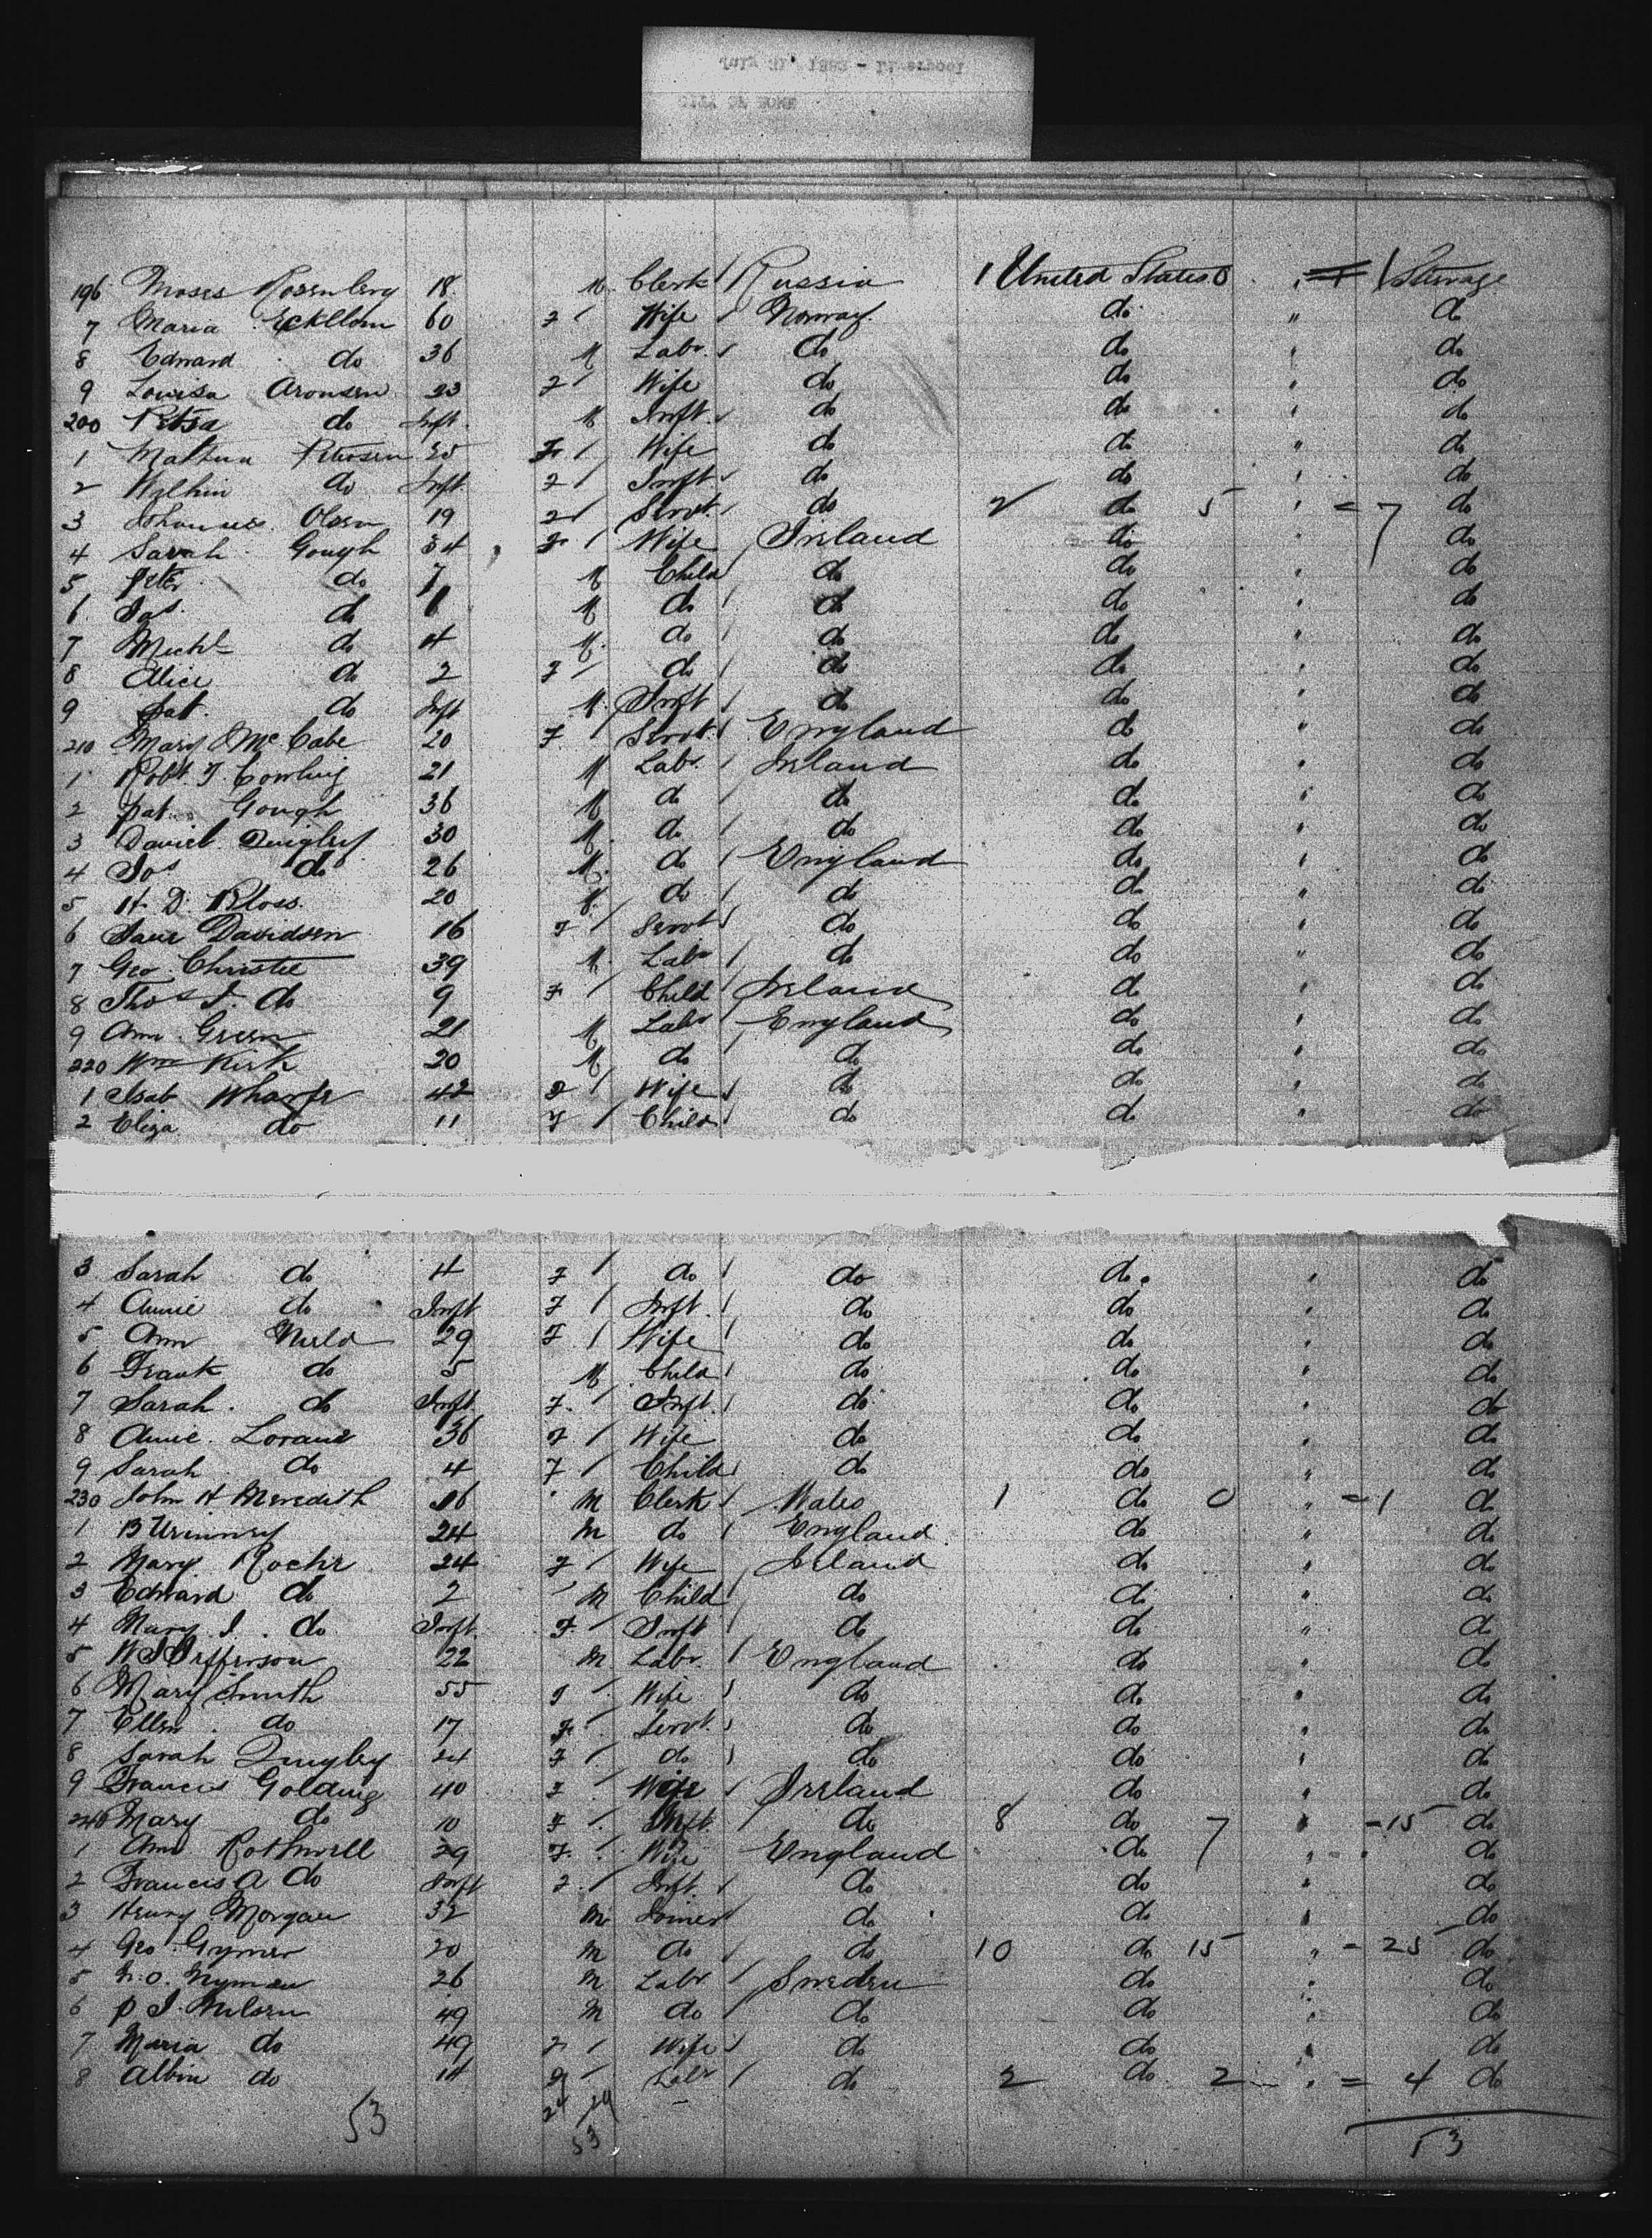 196 Moses Rosenberg 18 M. Clerk Russia 1 United States 0 " 1 Steerage
7 Maria Eckblom 60 F Wife Norway do " do
8 Edward do 36 M Labr. do do " do
9 Louisa Aronsen 23 F Wife do do " do
200 do Inft. M Inft. do do " do
1 Petersen F Wife do do " do
2 do Inft. F Inft do do " do
3 Olsen 19 F Servt. do 2 do 5 " = 7 do
4 Sarah Gough 34 F Wife Ireland do " do
5 Peter do 7 M Child do do " do
6 Jas. do 6 M do do do " do
7 Michl do 4 M. do do do " do
8 Alice do 2 F do do do " do
9 Pat. do Inft M. Inft do do " do
210 Mary McCabe 20 F Servt. England do " do
1 Robt. J. Cowling 21 M Labr. Ireland do " do
2 Pat. Gough 36 M do do do " do
3 Daniel Quigley 30 M. do do do " do
4 Jos do 26 M. do England do " do
5 H. D. Bloss. 20 M. do do do " do
6 Jane Davidson 16 F Servt do do " do
7 Geo. Christie 39 M. Labr do do " do
8 Thos J. do 9 F Child Ireland do " do
9 Ann Green 21 M Labr England do " do
220 Wm Kirk 20 M do do do " do
1 Isab Wharfe 42 F Wife do do " do
2 Eliza do 11 F Child do do " do
3 Sarah do 4 F do do do " do
4 Annie do Inft F Inft. do do " do
5 Ann Nield 29 F Wife do do " do
6 Frank do 5 M Child do do " do
7 Sarah. do Inft. F. Inft. do do " do
8 Annie 36 F Wife do do " do
9 Sarah do 4 F Child do do " do
230 John H Meredith 16 M Clerk Wales 1 do 0 " = 1 do
1 24 M do England do " do
2 Mary Roche 24 F Wife Ireland do " do
3 Edward do 2 M Child do do " do
4 Mary J. do Inft. F Inft do do " do
5 W J Jefferson 22 M Labr. England do " do
6 Mary Smith 55 F Wife do do " do
7 Ellen. do 17 F Servt. do do " do
8 Sarah Quigley 24 F do do do " do
9 Frances Golding 40 F Wife Ireland do " do
240 Mary do 10 F Inft do 8 do 7 " = 15 do
1 Ann Rothwell 29 F. Wife England do " do
2 Francis A do Inft F. Inft. do do " do
3 Henry Morgan 32 M Joiner do do " do
4 Geo. Gymer 20 M do do 10 do 15 " = 25 do
5 Nyman 26 M Labr Sweden do " do
6 P J. Nilsen 49 M do do do " do
7 Maria do 49 F Wife do do " do
8 Albin do 14 Labr do 2 do 2 " = 4 do
53 24 29 53
53